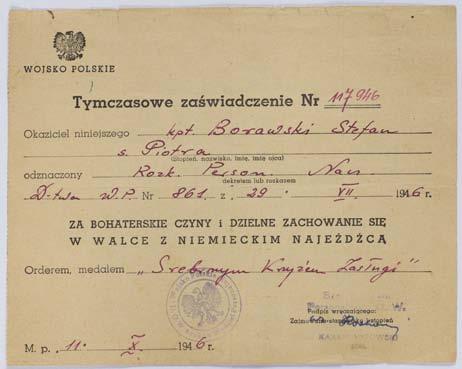 WOJSKO POLSKIE
Tymczasowe zaświadczenie Nr 117946
Okaziciel niniejszego kpt. Borawski Stefan
s. Piotra
(stopień, nazwisko, imię, imię ojca)
odznaczony Rozk. Person. Nacz.
dekretem lub rozkazem
D-twa W.P. Nr 861 z 29. VII. 1946 r.
ZA BOHATERSKIE CZYNY i DZIELNE ZACHOWANIE SIĘ
W WALCE Z NIEMIECKIM NAJEŹDŹCĄ
Orderem, medalem „Srebrnym Krzyżem Zasługi"
Podpis wręczającego:
M. p. 11. X. 1946 r.